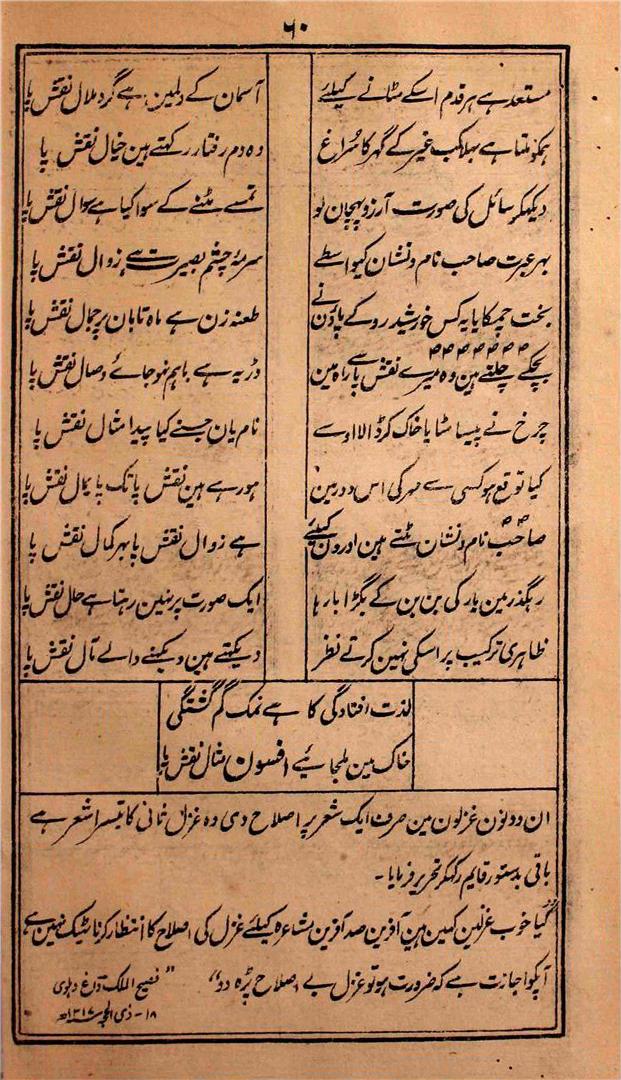 ۶۰
مستعد ہے ہر قدم اسکے مٹانے کیلئے آسمان کے دلمین ہے گرد ملال نقش پا
ہمکو ملتا ہے پہلا کب غیر کے گہر کا سُراغ دہ دم رفتار رکہتے ہین خیال نقش پا
دیکھکر سائل کی صورت آرزو پہچان لو تمسے مٹنے کے سوا کیا ہے سوال نقش پا
بہر عبرت صاحب نام و نشان کیواسطے سرمۂ چشم بصیرت ہے زوال نقش پا
بخت چمکایا یہ کس خورشید رو کے پاؤن نے طعنہ زن ہے ماہ تابان پر جمال نقش پا
بچکے چلتے ہین وہ میرے نقش پا سے راہ مین ڈر یہ ہے باہم نہو جاۓ وصال نقش پا
چرخ نے پیسا مٹایا خاک کر ڈالا اوسے نام یان جسنے کیا پیدا مثال نقش پا
کیا توقع ہو کسی سے مہر کی اس دور مین ہو رہے ہین نقش پا تک پایمال نقش پا
صاحب نام و نشان مٹتے ہین اورون کیلئے ہے زوال نقش پا بہر کمال نقش پا
رہگذر مین یار کی بن بن کے بگڑا بارہا ایک صورت پر نہین رہتا ہے حال نقش پا
ظاہری ترکیب پر اسکی نہین کرتے نظر دیکہتے ہین دیکہنے والے مآل نقش پا
لذت افتادگی کا ہے نمک گم گشتگی
خاک مین ملجائیے افسون مثال نقش پا
ان دونون غزلون مین صرف ایک شعر پر اصلاح دی وہ غزل ثانی کا تیسرا شعر ہے
باقی بدستور قایم رکہکر تحریر فرمایا۔
"کیا خوب غزلین کہین ہین آفرین صد آفرین مشاعرہ کیلئے غزل کی اصلاح کا انتظار کرنا ٹہیک نہین ہے
آپکو اجازت ہے کہ ضرورت ہو تو غزل بے اصلاح پڑہ دو" "فصیح الملک داغ دہلوی
۱۸- ذی الحجہ ۱۳۱۷ھ